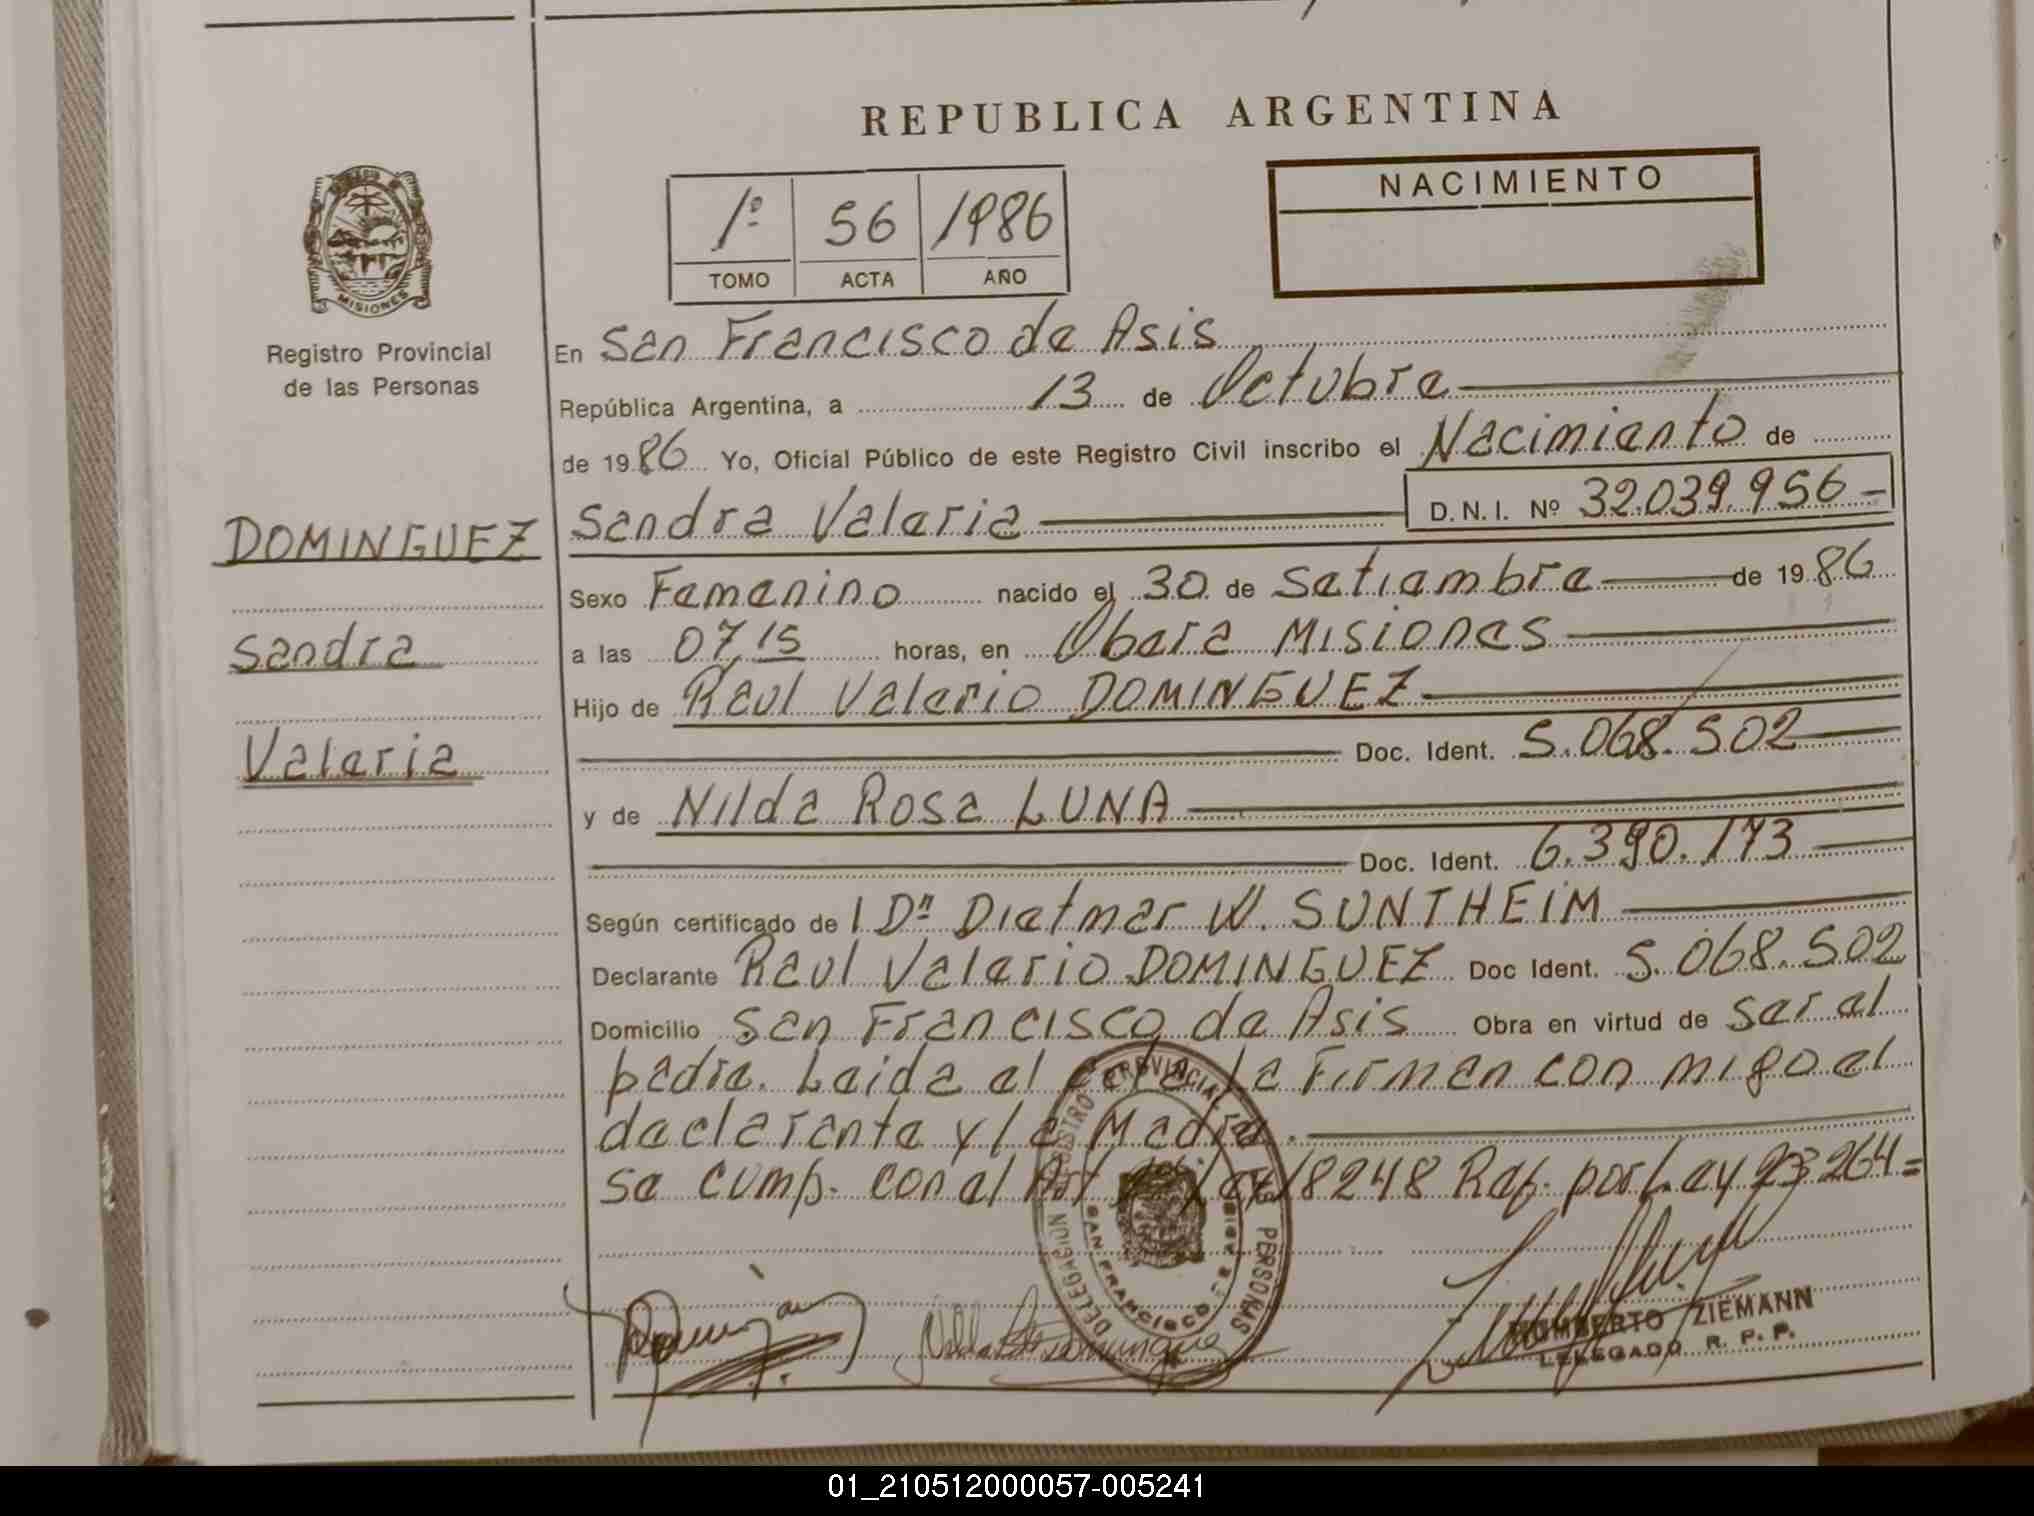 REPUBLICA ARGENTINA
NACIMIENTO
1º 56 1986
TOMO ACTA AÑO
MISIONES
Registro Provincial
de las Personas
DOMINGUEZ
Sandra
Valeria
En San Francisco de Asis
República Argentina, a 13 de Octubre
de 1986 Yo, Oficial Público de este Registro Civil inscribo el Nacimiento de
Sandra Valeria D.N.I. Nº 32.039.956-
Sexo Femenino nacido el 30 de Setiembre de 1986
a las 07,15 horas, en Obera Misiones
Hijo de Raul Valerio DOMINGUEZ
Doc. Ident. 5.068.502
y de Nilda Rosa LUNA
Doc. Ident. 6.390.173
Según certificado de l Dº Dietmar W. SUNTHEIM
Declarante Raul Valerio DOMINGUEZ Doc Ident. 5.068.502
Domicilio San Francisco de Asis Obra en virtud de ser el
padre. Leida el acta la Firman con migo el
declarante y la Madre.
se cump. con el Art Ley 18248 Raf. por Ley 23264=
DELEGACION REGISTRO PROVINCIAL DE LAS PERSONAS
SAN FRANCISCO DE ASIS
HUMBERTO ZIEMANN
DELEGADO R. P. P.
01_210512000057-005241